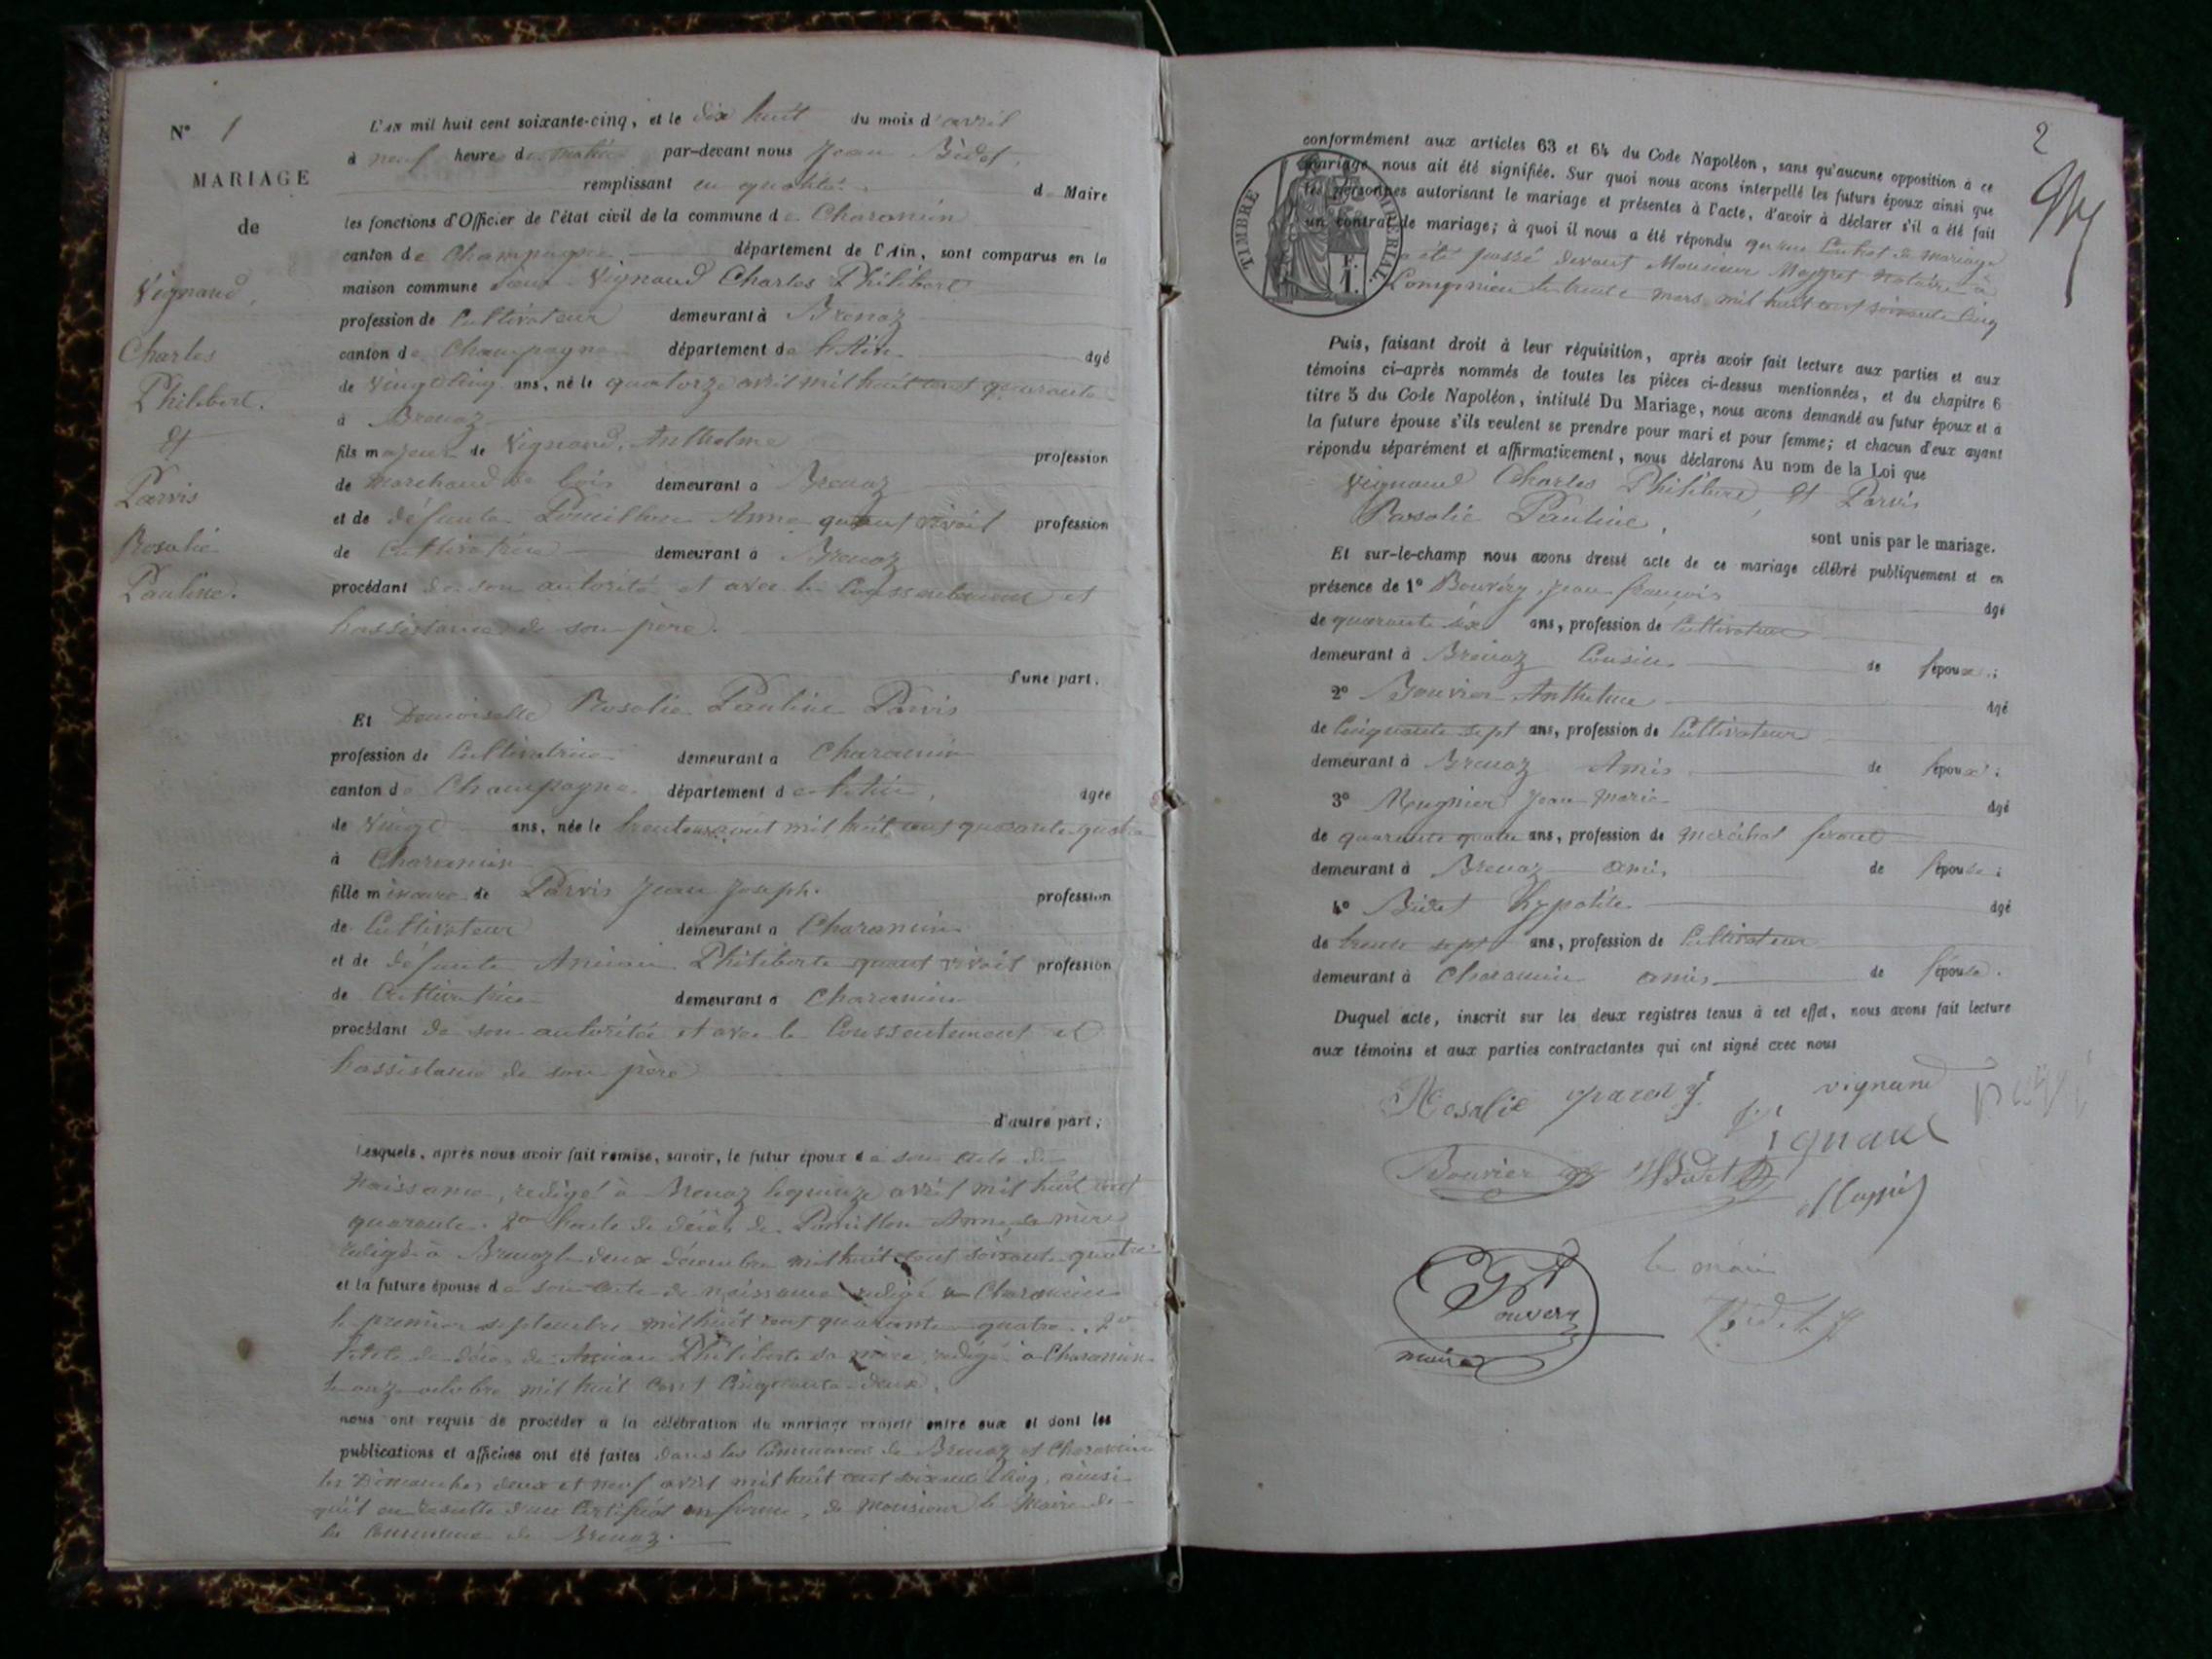 N° 1
MARIAGE
de
Vignand,
Charles
Philibert.
Et
Parvis
Rosalie
Pauline.
L'AN mil huit cent soixante-cinq, et le dix huit du mois d'avril
à neuf heures du matin par-devant nous Jean Bidet,
remplissant en qualité de Maire
les fonctions d'Officier de l'état civil de la commune de Charancin
canton de Champagne département de l'Ain, sont comparus en la
maison commune Vignand Charles Philibert
profession de Cultivateur demeurant à Brenaz
canton de Champagne département de l'Ain âgé
de vingt cinq ans, né le quatorze avril mil huit cent quarante
à Brenaz
fils majeur de Vignand, Anthelme profession
de marchand de bois demeurant à Brenaz
et de défunte Anne quant vivait profession
de Cultivatrice demeurant à Brenaz
procédant de son autorité et avec le Conssentement et
l'assistance de son père.
d'une part.
Et Demoiselle Rosalie Pauline Parvis
profession de Cultivatrice demeurant à Charancin
canton de Champagne département de l'Ain, âgée
de vingt ans, née le trente un août mil huit cent quarante quatre
à Charancin
fille mineure de Parvis Jean Joseph. profession
de Cultivateur demeurant à Charancin
et de défunte Philiberte quant vivait profession
de Cultivatrice demeurant à Charancin
procédant de son autoritée et avec le Conssentement et
l'assistance de son père
d'autre part;
Lesquels, après nous avoir fait remise, savoir, le futur époux de son acte de
naissance, redigé à Brenaz le quinze avril mil huit cent
quarante. 2° l'acte de décès de Anne, sa mère
redigé à Brenaz le deux décembre mil huit cent soixante quatre
et la future épouse de son acte de naissance redigé à Charancin
le premier septembre mil huit cent quarante quatre. 2°
l'acte de décès de Philiberte sa mère, redigé à Charancin
le onze octobre mil huit cent Cinquante-deux.
nous ont requis de procéder à la célébration du mariage projeté entre eux et dont les
publications et affiches ont été faites dans les Communes de Brenaz et Charancin
les Dimanches deux et neuf avril mil huit cent soixante Cinq, ainsi
qu'il en résulte d'un Certificat en forme, de Monsieur le Maire de
la Commune de Brenaz.
2
conformément aux articles 63 et 64 du Code Napoléon, sans qu'aucune opposition à ce
mariage nous ait été signifiée. Sur quoi nous avons interpellé les futurs époux ainsi que
les personnes autorisant le mariage et présentes à l'acte, d'avoir à déclarer s'il a été fait
un contrat de mariage; à quoi il nous a été répondu qu'un Contrat de mariage
a été passé devant Monsieur notaire à
le trente mars mil huit cent soixante Cinq
TIMBRE IMPÉRIAL
F.
1.
Puis, faisant droit à leur réquisition, après avoir fait lecture aux parties et aux
témoins ci-après nommés de toutes les pièces ci-dessus mentionnées, et du chapitre 6
titre 5 du Code Napoléon, intitulé Du Mariage, nous avons demandé au futur époux et à
la future épouse s'ils veulent se prendre pour mari et pour femme; et chacun d'eux ayant
répondu séparément et affirmativement, nous déclarons Au nom de la Loi que
Vignand Charles Philibert, Et Parvis
Rosalie Pauline,
sont unis par le mariage.
Et sur-le-champ nous avons dressé acte de ce mariage célébré publiquement et en
présence de 1° Bouvéry, Jean françois âgé
de quarante six ans, profession de Cultivateur
demeurant à Brenaz Cousin de l'époux;
2° Bouvier Anthelme âgé
de Cinquante sept ans, profession de Cultivateur
demeurant à Brenaz Amis de l'époux;
3° Mugnier Jean Marie âgé
de quarante quatre ans, profession de maréchal ferant
demeurant à Brenaz amis de l'épouse;
4° Bidet Hypolite âgé
de trente sept ans, profession de Cultivateur
demeurant à Charancin amis de l'épouse.
Duquel acte, inscrit sur les deux registres tenus à cet effet, nous avons fait lecture
aux témoins et aux parties contractantes qui ont signé avec nous
Rosalie vignand
Bouvier Bidet
le maire
Bidet
Bouvery
maire